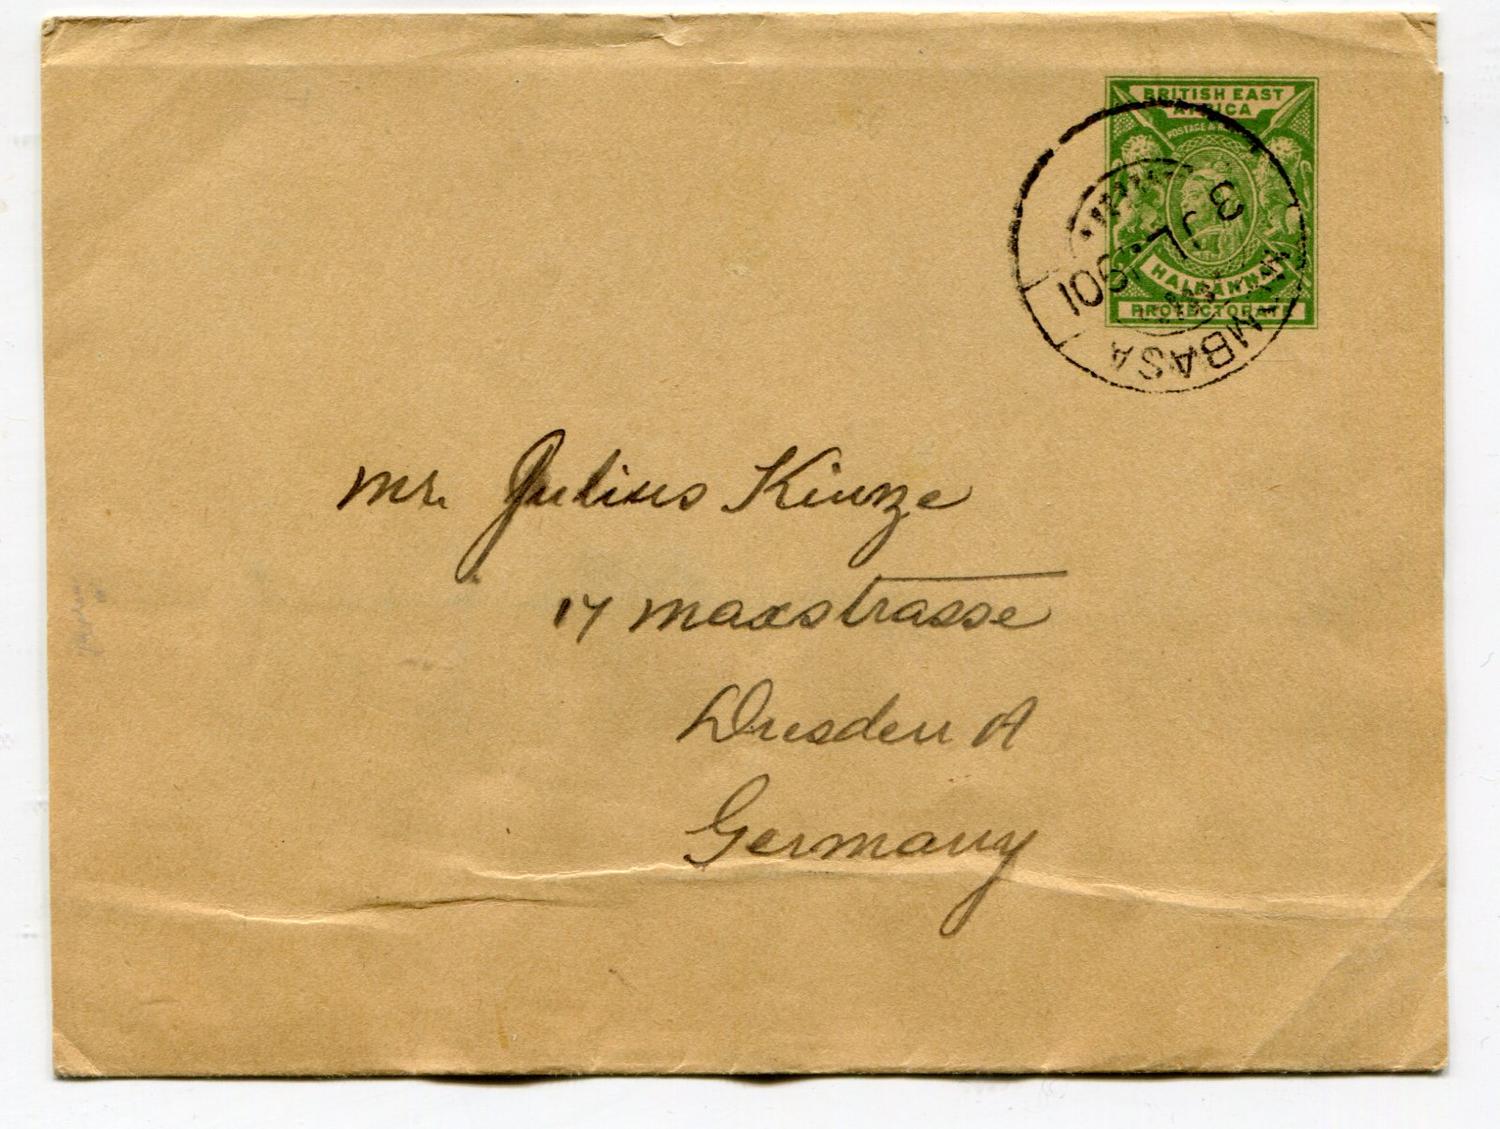 BRITISH EAST
AFRICA
POSTAGE &
HALF ANNA
PROTECTORATE
MOMBASA
3
JL
1901
Mr. Julius Kinze
17 Maxstrasse
Dresden A
Germany